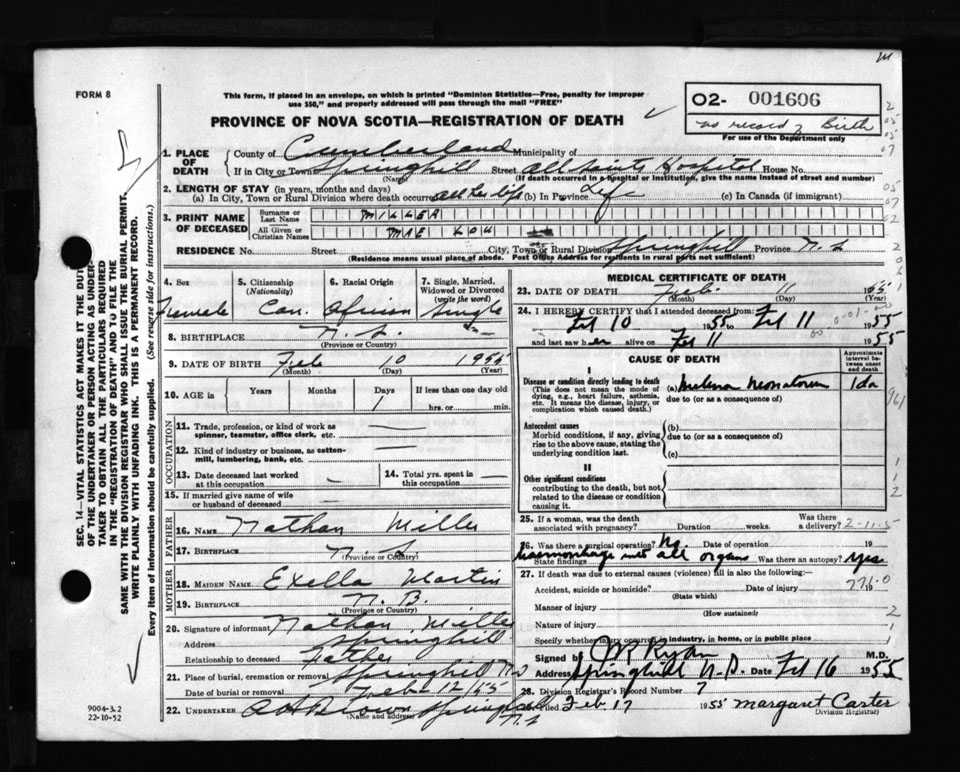 FORM 8
This form, if placed in an envelope, on which is printed "Dominion Statistics—Free, penalty for improper
use $50," and properly addressed will pass through the mail "FREE"
PROVINCE OF NOVA SCOTIA—REGISTRATION OF DEATH
02- 001606
no record of Birth
For use of the Department only
1. PLACE OF DEATH
County of Cumberland Municipality of
If in City or Town Springhill Street All Saints Hospital House No.
(Name) (If death occurred in a hospital or institution, give the name instead of street and number)
2. LENGTH OF STAY (in years, months and days)
(a) In City, Town or Rural Division where death occurred all her life (b) In Province Life (c) In Canada (if immigrant)
3. PRINT NAME OF DECEASED
Surname or Last Name MILLER
All Given or Christian Names MAE LOU
RESIDENCE No. Street City, Town or Rural Division Springhill Province N.S.
(Residence means usual place of abode. Post Office Address for residents in rural parts not sufficient)
4. Sex Female
5. Citizenship (Nationality) Can.
6. Racial Origin African
7. Single, Married, Widowed or Divorced (write the word) Single
8. BIRTHPLACE N.S.
(Province or Country)
9. DATE OF BIRTH Feb 10 1955
(Month) (Day) (Year)
10. AGE in Years Months Days If less than one day old
1 hrs. or min.
OCCUPATION
11. Trade, profession, or kind of work as
spinner, teamster, office clerk, etc. —
12. Kind of industry or business, as cotton-
mill, lumbering, bank, etc. —
13. Date deceased last worked
at this occupation —
14. Total yrs. spent in
this occupation —
15. If married give name of wife
or husband of deceased —
FATHER
16. NAME Nathan Miller
17. BIRTHPLACE N.S.
(Province or Country)
MOTHER
18. MAIDEN NAME. Exella Martin
19. BIRTHPLACE N.B.
(Province or Country)
20. Signature of informant Nathan Miller
Address Springhill
Relationship to deceased Father
21. Place of burial, cremation or removal Springhill N.S.
Date of burial or removal Feb 12/55
22. UNDERTAKER Brown Springhill
(Name and address) N.S.
MEDICAL CERTIFICATE OF DEATH
23. DATE OF DEATH Feb. 11 1955
(Month) (Day) (Year)
24. I HEREBY CERTIFY that I attended deceased from:
Feb 10 1955 to Feb 11 1955
and last saw her alive on Feb 11 1955
CAUSE OF DEATH
Approximate interval between onset and death
I
Disease or condition directly leading to death
(This does not mean the mode of dying, e.g., heart failure, asthenia, etc. It means the disease, injury, or complication which caused death.)
(a) Melena Neonatorum 1 da
due to (or as a consequence of)
961
Antecedent causes
Morbid conditions, if any, giving rise to the above cause, stating the underlying condition last.
(b)
due to (or as a consequence of)
(c)
II
Other significant conditions
contributing to the death, but not related to the disease or condition causing it.
25. If a woman, was the death
associated with pregnancy? Duration weeks. Was there a delivery? 2-11-5
26. Was there a surgical operation? No. Date of operation 19
State findings haemorrhage into all organs Was there an autopsy? yes
27. If death was due to external causes (violence) fill in also the following:—
Accident, suicide or homicide? Date of injury 19
(State which) 771.0
Manner of injury
(How sustained)
Nature of injury
Specify whether injury occurred in industry, in home, or in public place
Signed by Ryan M.D.
Address Springhill N.S. Feb 16 1955
28. Division Registrar's Record Number 7
Filed Feb 17 1955 Margaret Carter
Division Registrar
SEC. 14—VITAL STATISTICS ACT MAKES IT THE DUTY
OF THE UNDERTAKER OR PERSON ACTING AS UNDER-
TAKER TO OBTAIN ALL THE PARTICULARS REQUIRED
IN THE "REGISTRATION OF DEATH" AND TO FILE THE
SAME WITH THE DIVISION REGISTRAR WHO SHALL ISSUE THE BURIAL PERMIT.
WRITE PLAINLY WITH UNFADING INK. THIS IS A PERMANENT RECORD.
Every item of information should be carefully supplied. (See reverse side for instructions.)
9004-3.2
22-10-52